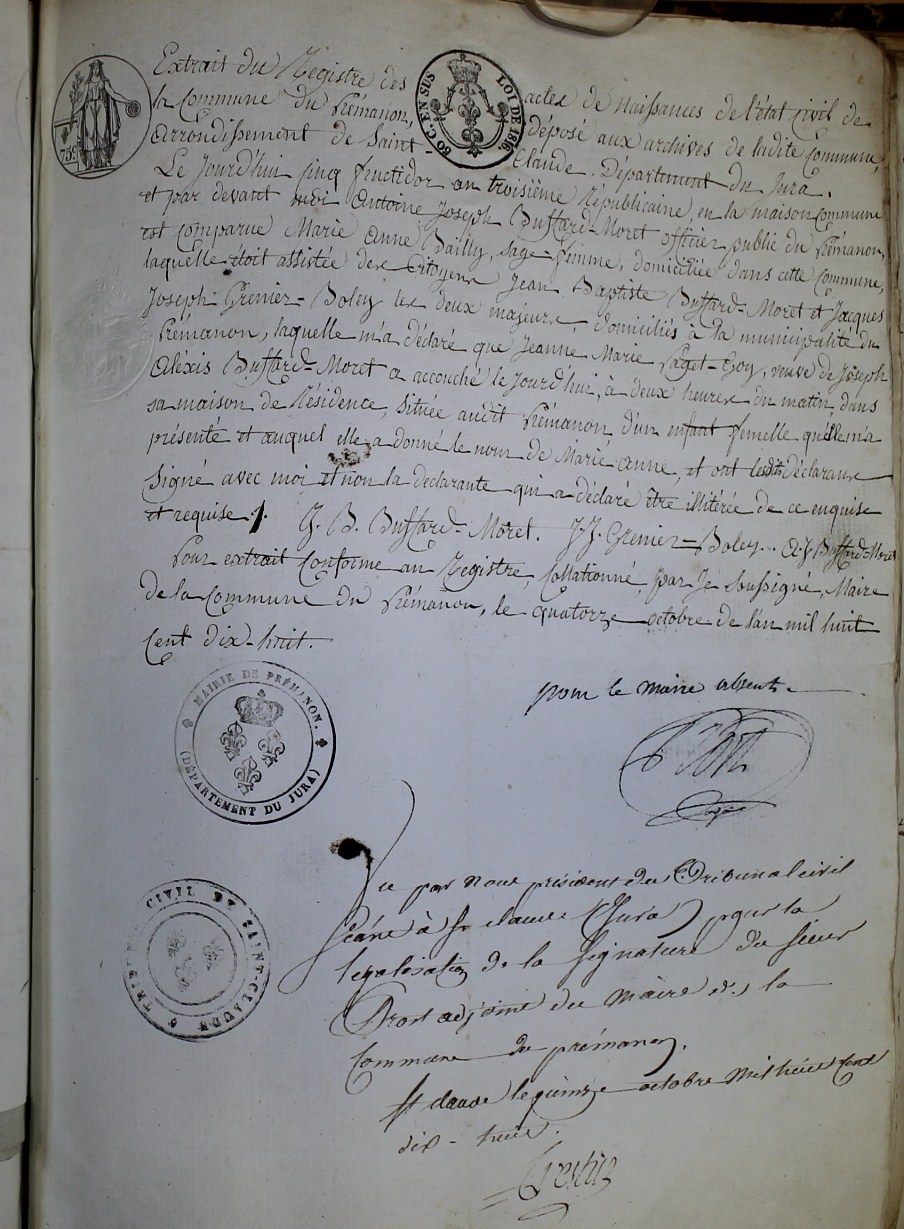 Extrait du Régistre des actes de naissances de l'état civil de
la Commune du Prémanon, déposé aux archives de ladite Commune,
Arrondissement de Saint-Claude, Département du Jura.
Le Jourd'hui cinq fructidor an troisième Républicaine, en la maison commune
et par devant moi Antoine Joseph Buffard-Moret officier public du Prémanon,
est comparue Marie Anne Bailly, sage-femme, domiciliée dans cette Commune,
laquelle étoit assistée des Citoyens Jean Baptiste Buffard-Moret et Jacques
Joseph Grenier-Boley les deux majeurs, domiciliés à la municipalité du
Prémanon, laquelle m'a déclaré que Jeanne Marie Paget-Goy, veuve de Joseph
Aléxis Buffard-Moret a accouché le Jourd'hui, à deux heures du matin, dans
sa maison de Résidence, située audit Prémanon d'un enfant femelle qu'elle m'a
présenté et auquel elle a donné le nom de Marie-anne, et ont lesdits déclarans
Signé avec moi et non la déclarante qui a déclaré être illitérée de ce enquise
et requise ./. J. B. Buffard-Moret. J.J. Grenier-Boley. A.J Buffard-Moret
Pour extrait Conforme au Registre, Collationné, par Je Soussigné, Maire
de la Commune du Prémanon, le quatorze octobre de l'an mil huit
Cent dix-huit.
75c
60 C. EN SUS
LOI DE 1816
pour le maire absent
MAIRIE DE PRÉMANON.
(DÉPARTEMENT DU JURA)
Vu par Nous président du Tribunal civil
séant à St claude (Jura) pour la
légalisation de la signature du sieur
Prost adjoint du Maire de la
Commune du prémanon.
St claude le quinze octobre Mil huit Cent
dix-huit.
TRIBUNAL CIVIL DE SAINT-CLAUDE